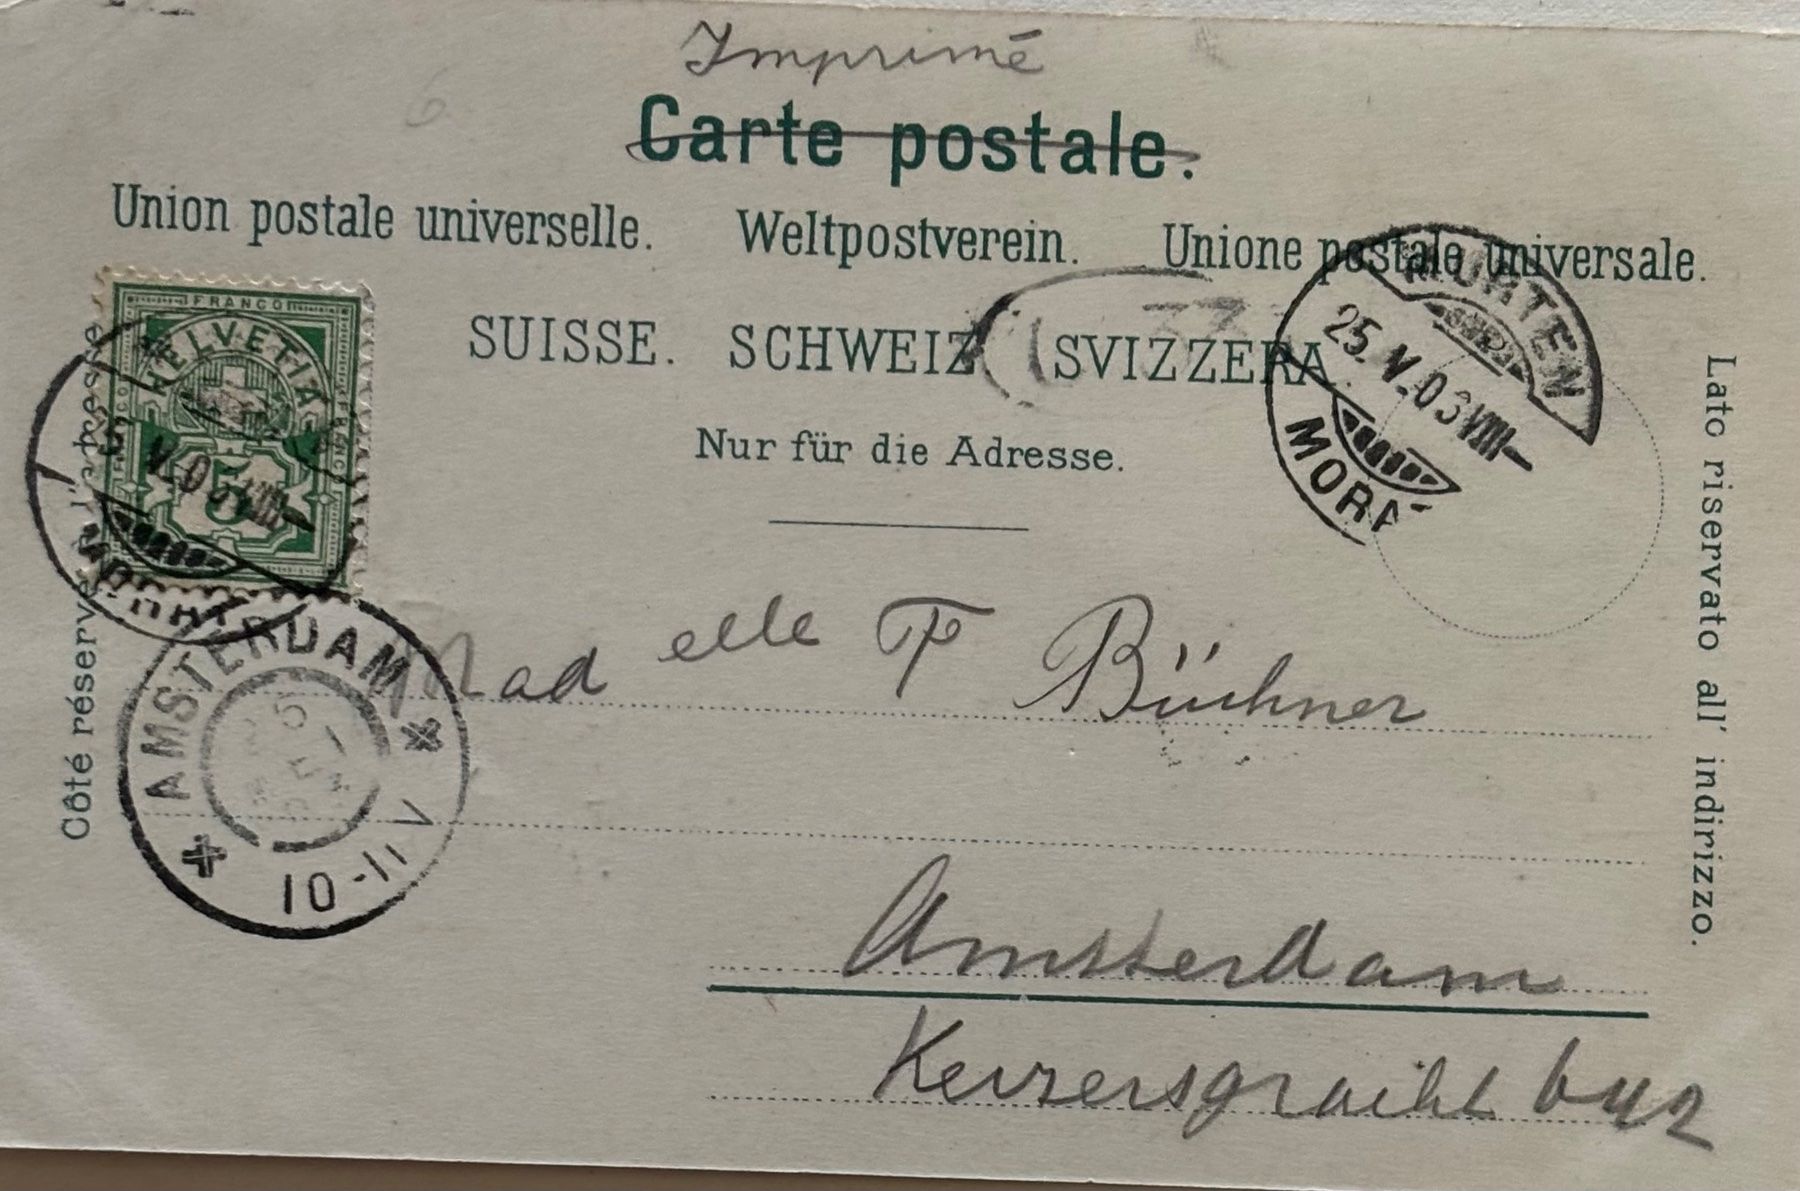 Imprimé
Carte postale.
Union postale universelle. Weltpostverein. Unione postale universale.
SUISSE. SCHWEIZ SVIZZERA.
Nur für die Adresse.
FRANCO
HELVETIA
5
MURTEN
25. V. 03 VIII
MORA
AMSTERDAM
10-11 V
Madelle F Büchner
Amsterdam
Keizersgracht 642
Côté réservé à l'adresse
Lato riservato all' indirizzo.